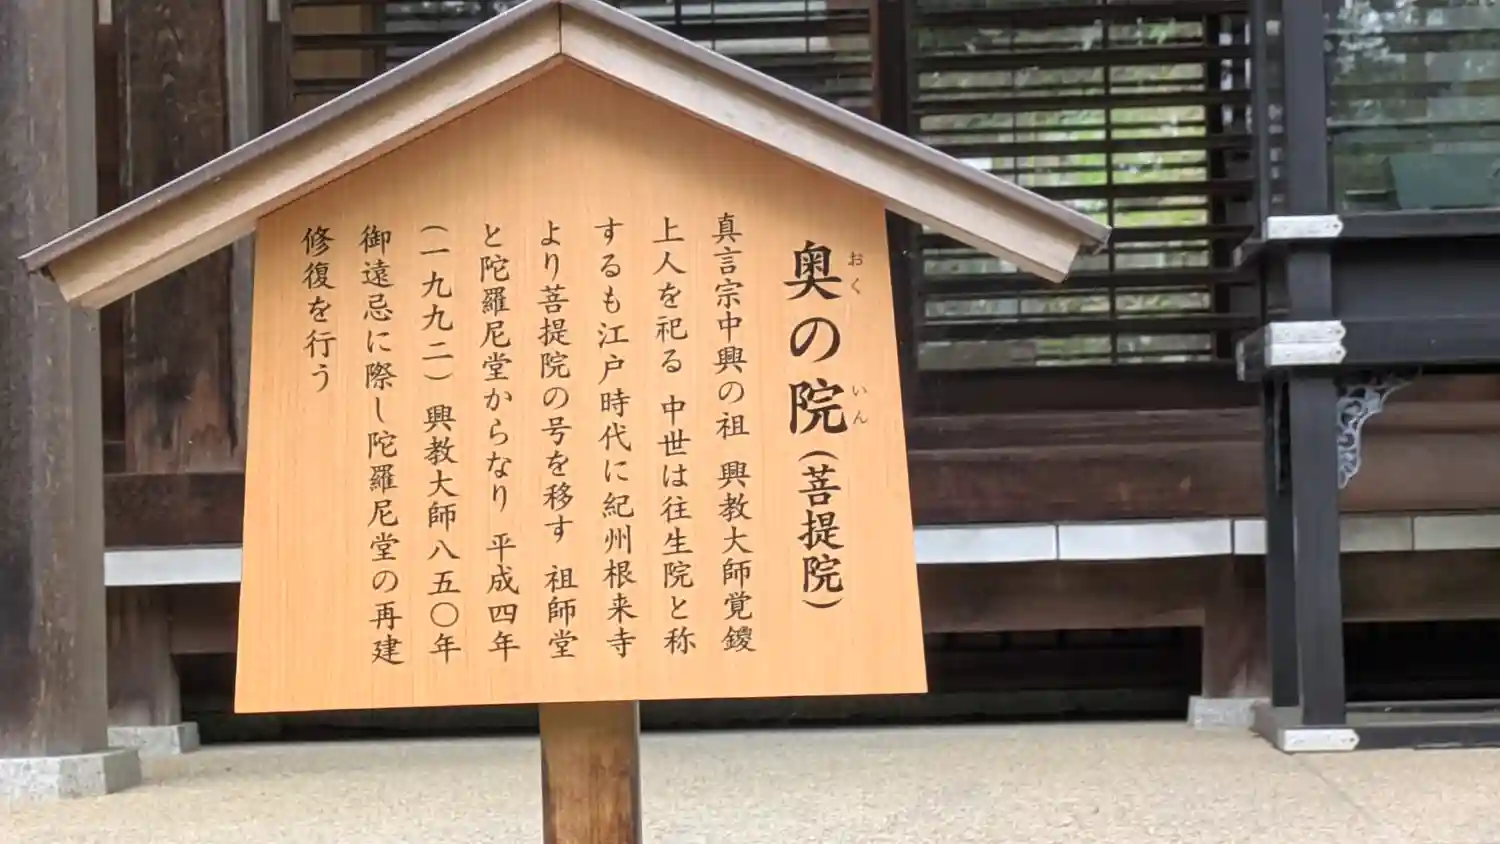 奥の院(菩提院)
おく
いん
真言宗中興の祖 興教大師覚鑁
上人を祀る 中世は往生院と称
するも江戸時代に紀州根来寺
より菩提院の号を移す 祖師堂
と陀羅尼堂からなり 平成四年
(一九九二) 興教大師八五〇年
御遠忌に際し陀羅尼堂の再建
修復を行う